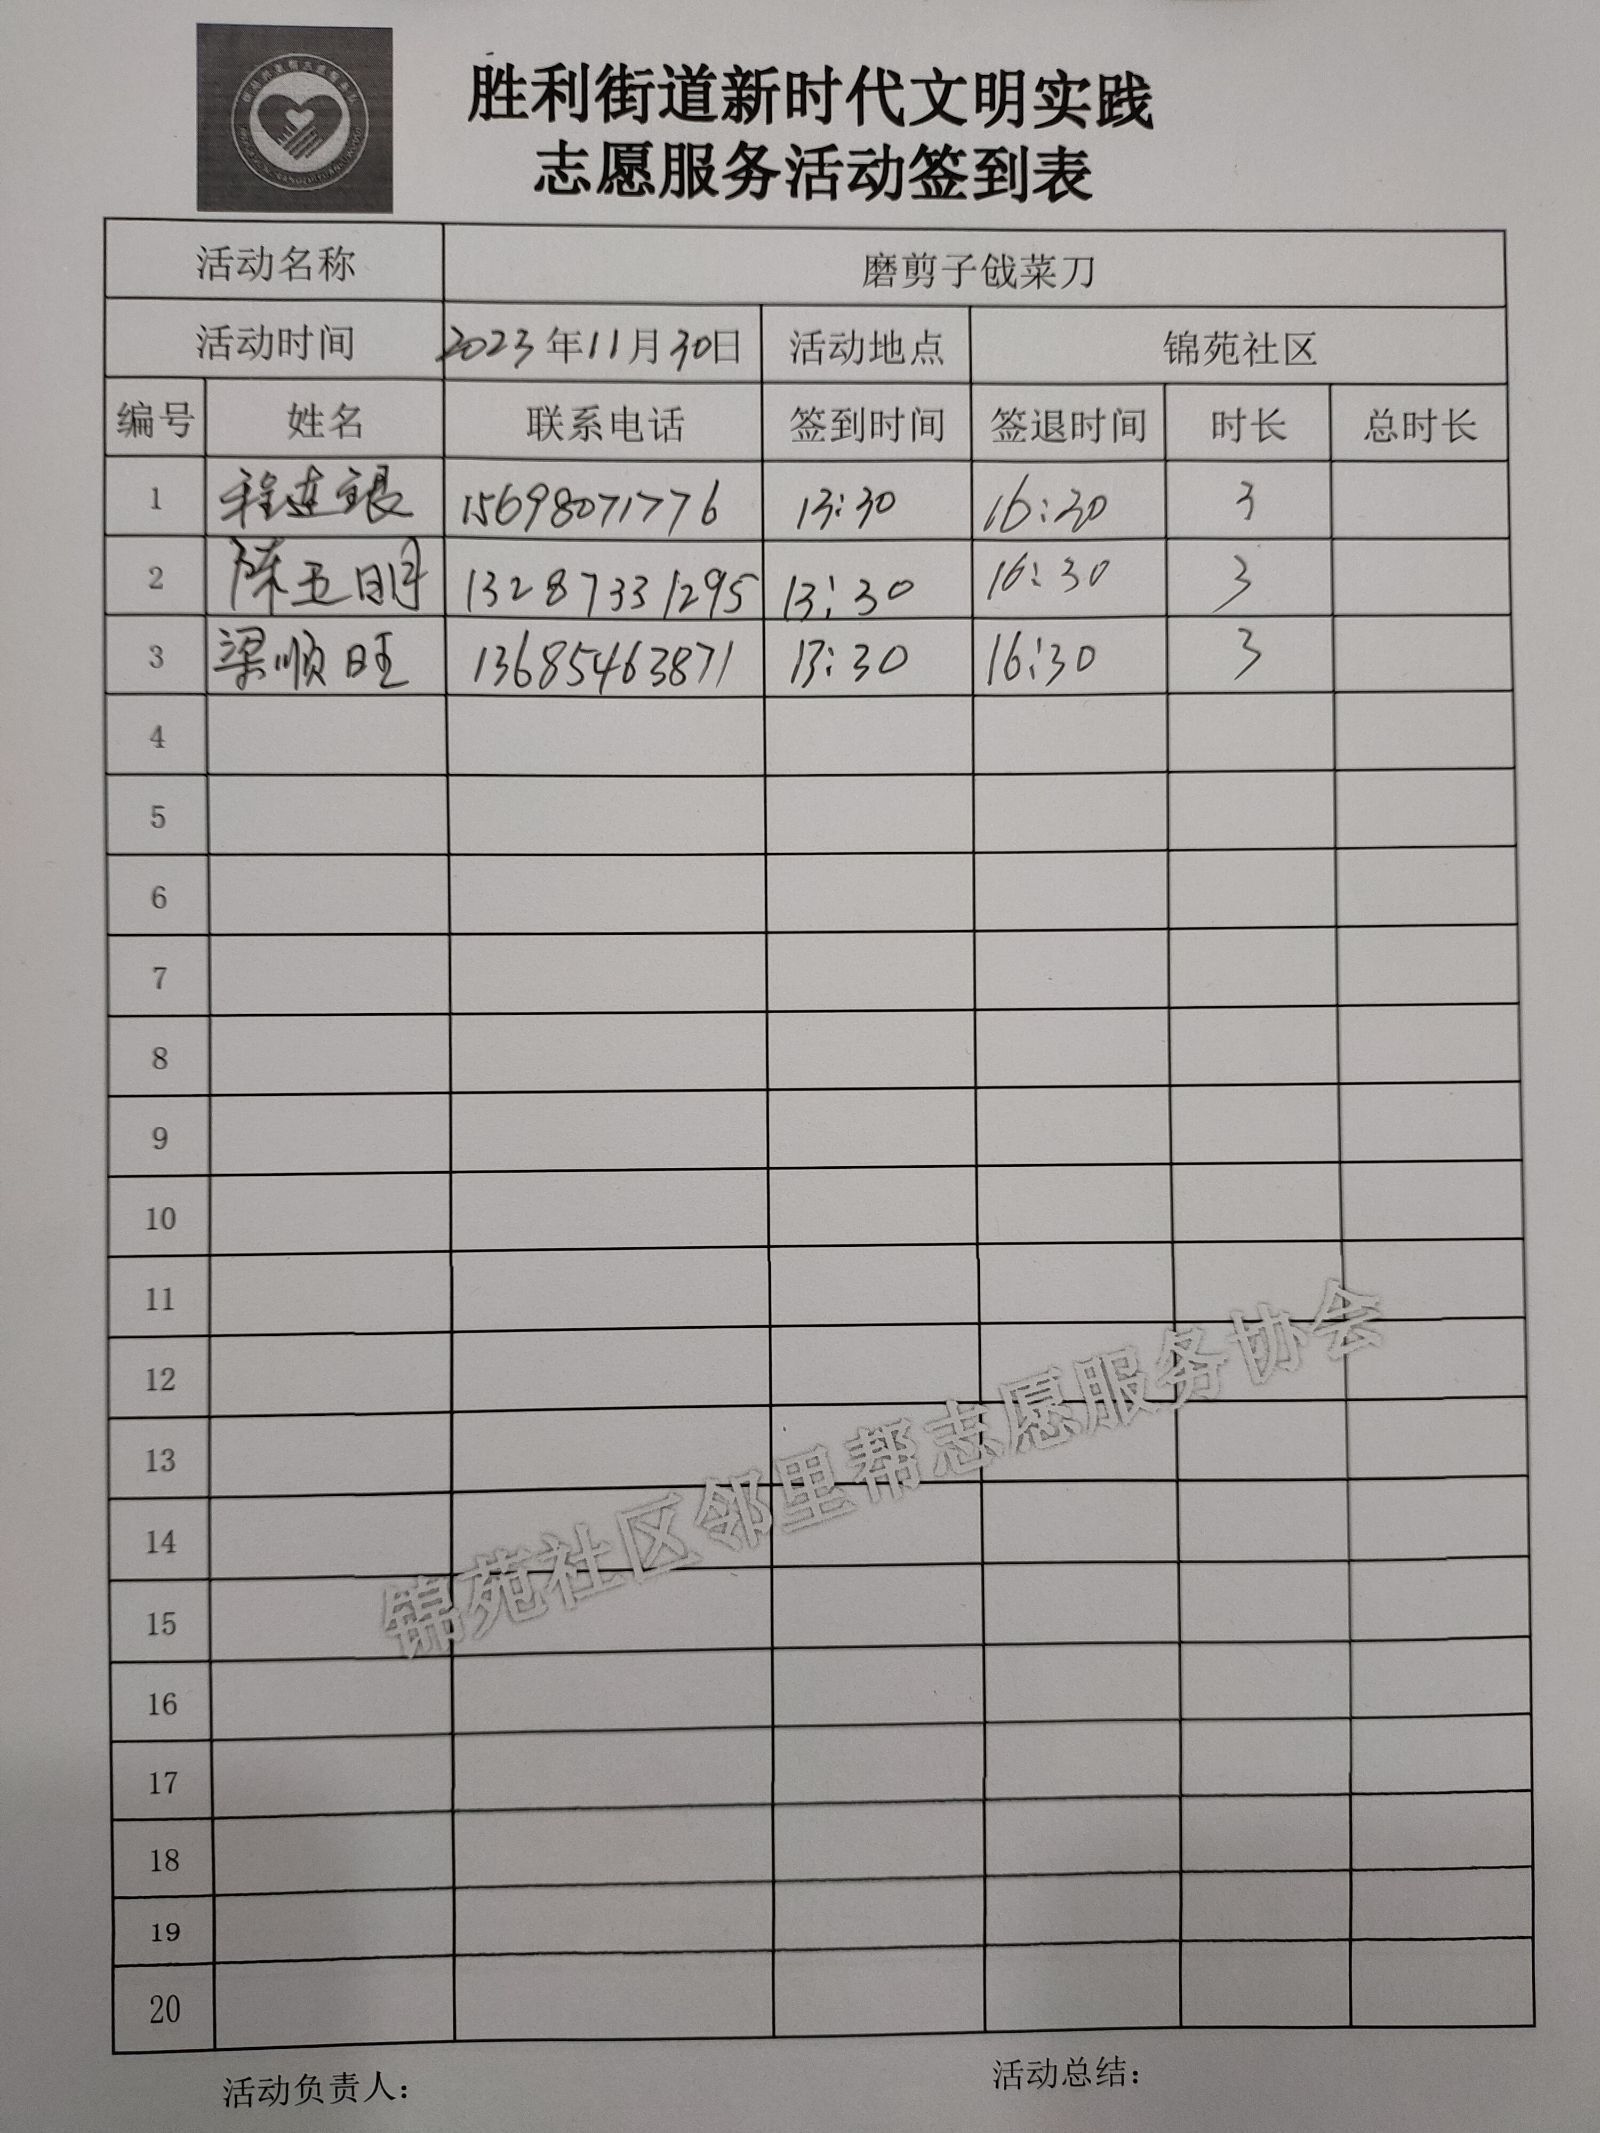 胜利街道新时代文明实践
志愿服务活动签到表
活动名称 磨剪子戗菜刀
活动时间 2023年11月30日 活动地点 锦苑社区
编号 姓名 联系电话 签到时间 签退时间 时长 总时长
1 程连银 15698071776 13:30 16:30 3
2 陈玉明 13287331295 13:30 16:30 3
3 梁顺旺 13685463871 13:30 16:30 3
4
5
6
7
8
9
10
11
12
13
14
15
16
17
18
19
20
锦苑社区邻里帮志愿服务协会
活动负责人： 活动总结：